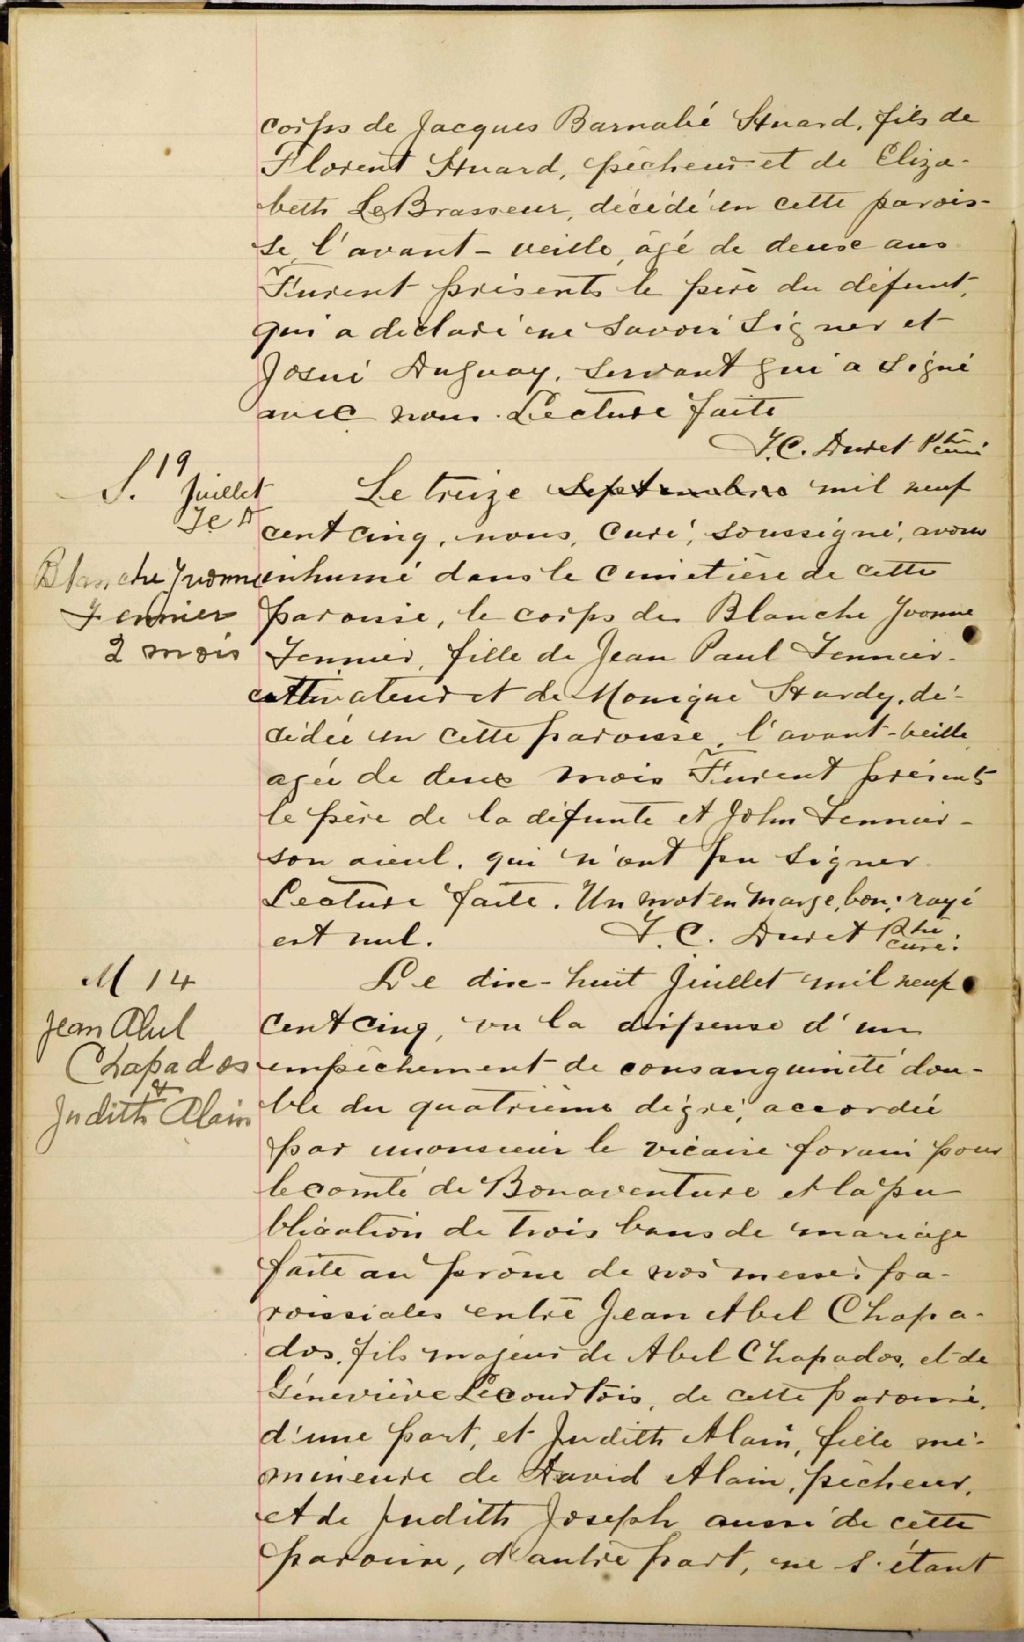 corps de Jacques Barnabé Huard, fils de
Florent Huard, pêcheur et de Eliza-
beth LeBrasseur, décédé en cette parois-
se, l'avant-veille, âgé de deux ans
Furent présents le père du défunt,
qui a déclaré ne savoir signer et
Josué Duguay, servant qui a signé
avec nous. Lecture faite
J.C. Duret Ptre curé
S. 19
Juillet
J C D
Blanche Yvonne
Fennier
2 mois
Le treize Septembre mil neuf
cent cinq, nous, curé, soussigné, avons
inhumé dans le cimetière de cette
paroisse, le corps de Blanche Yvonne
Fennier, fille de Jean Paul Fennier
cultivateur et de Monique Hardy, dé-
cédée en cette paroisse, l'avant-veille
agée de deux mois Furent présents
le père de la défunte et John Fennier
son aïeul, qui n'ont pu signer
Lecture faite. Un mot en marge, bon; rayé
est nul. J. C. Duret Ptre curé.
M 14
Jean Abel
Chapados
&
Judith Alain
Le dix-huit Juillet mil neuf
cent cinq, vu la dispense d'un
empêchement de consanguinité dou-
ble du quatrième dégré, accordée
par monsieur le vicaire forain pour
le comté de Bonaventure et la pu
blication de trois bans de mariage
faite au prône de nos messes pa-
roissiales entre Jean Abel Chapa-
dos, fils majeur de Abel Chapados, et de
Géneviève Lecourtois, de cette paroisse,
d'une part, et Judith Alain, fille mi-
mineure de David Alain, pêcheur,
et de Judith Joseph aussi de cette
paroisse, d'autre part, ne s'étant